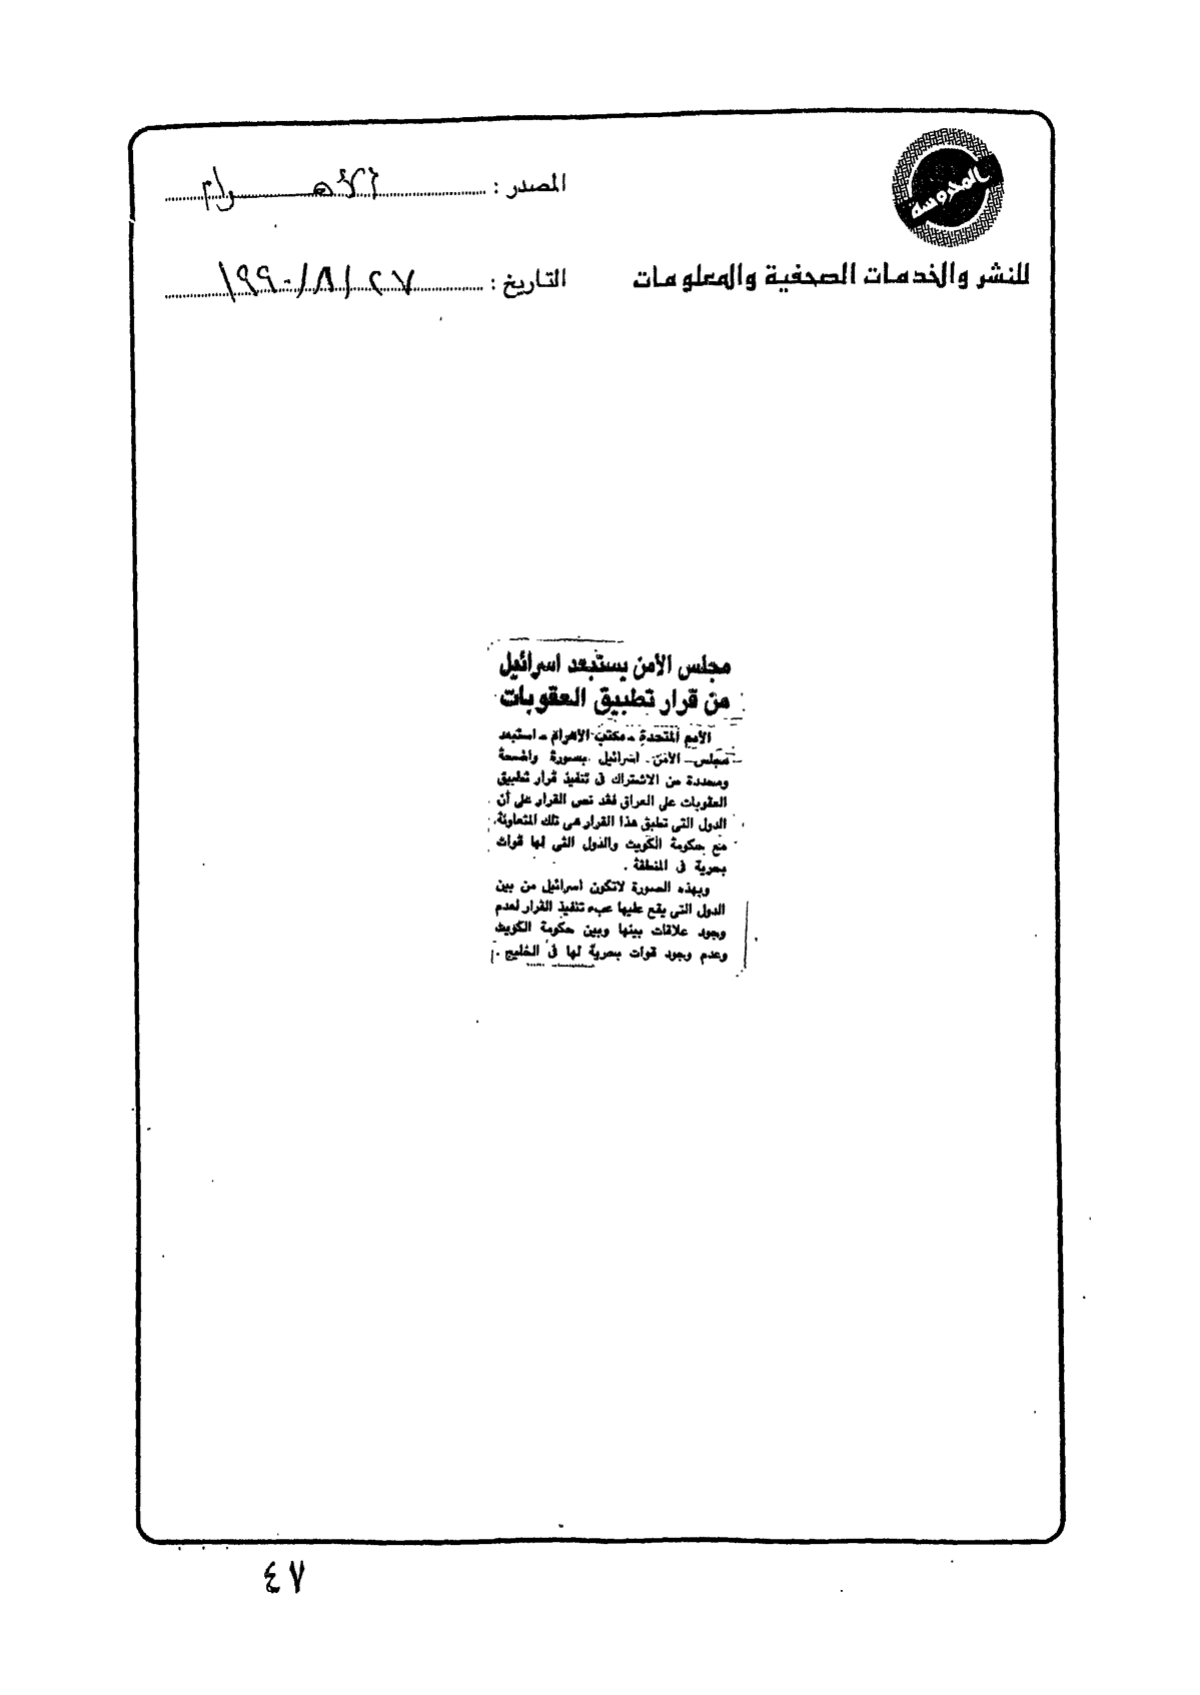 المحروسة
للنشر والخدمات الصحفية والمعلومات
المصدر : الأهـــرام
التاريخ : ٢٧/٨/١٩٩٠
مجلس الأمن يستبعد اسرائيل
من قرار تطبيق العقوبات
الأمم المتحدة - مكتب الأهرام - استبعد
مجلس الأمن اسرائيل بصورة واضحة
ومحددة من الاشتراك فى تنفيذ قرار تطبيق
العقوبات على العراق فقد نص القرار على أن
الدول التى تطبق هذا القرار هى تلك المتعاونة
مع حكومة الكويت والدول التى لها قوات
بحرية فى المنطقة .
وبهذه الصورة لاتكون اسرائيل من بين
الدول التى يقع عليها عبء تنفيذ القرار لعدم
وجود علاقات بينها وبين حكومة الكويت
وعدم وجود قوات بحرية لها فى الخليج .
٤٧